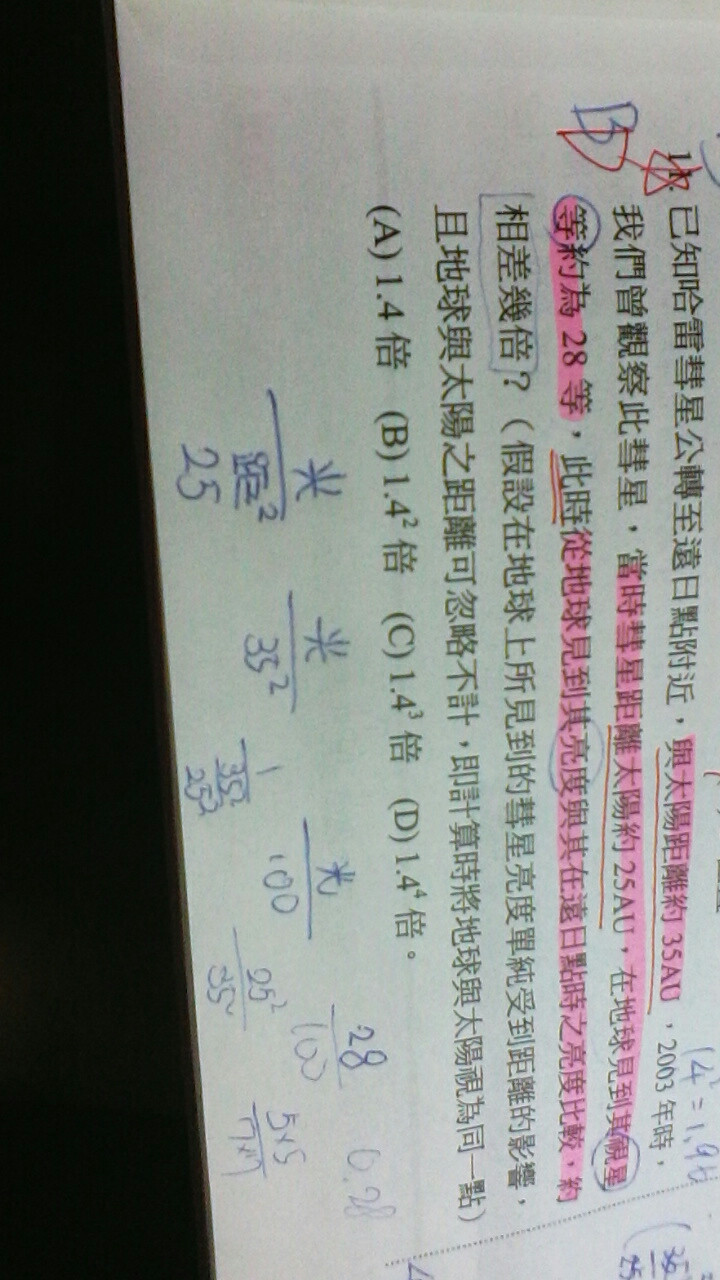 B
11. 已知哈雷彗星公轉至遠日點附近，與太陽距離約 35AU，2003 年時，
我們曾觀察此彗星，當時彗星距離太陽約 25AU，在地球見到其視星
等約為 28 等，此時從地球見到其亮度與其在遠日點時之亮度比較，約
相差幾倍？（假設在地球上所見到的彗星亮度單純受到距離的影響，
且地球與太陽之距離可忽略不計，即計算時將地球與太陽視為同一點）
(A) 1.4 倍 (B) 1.4² 倍 (C) 1.4³ 倍 (D) 1.4⁴ 倍。
光 光 光 28 0.28
距² 35² 100 100
25 1 25² 5×5
35² 35² 7×7
25²